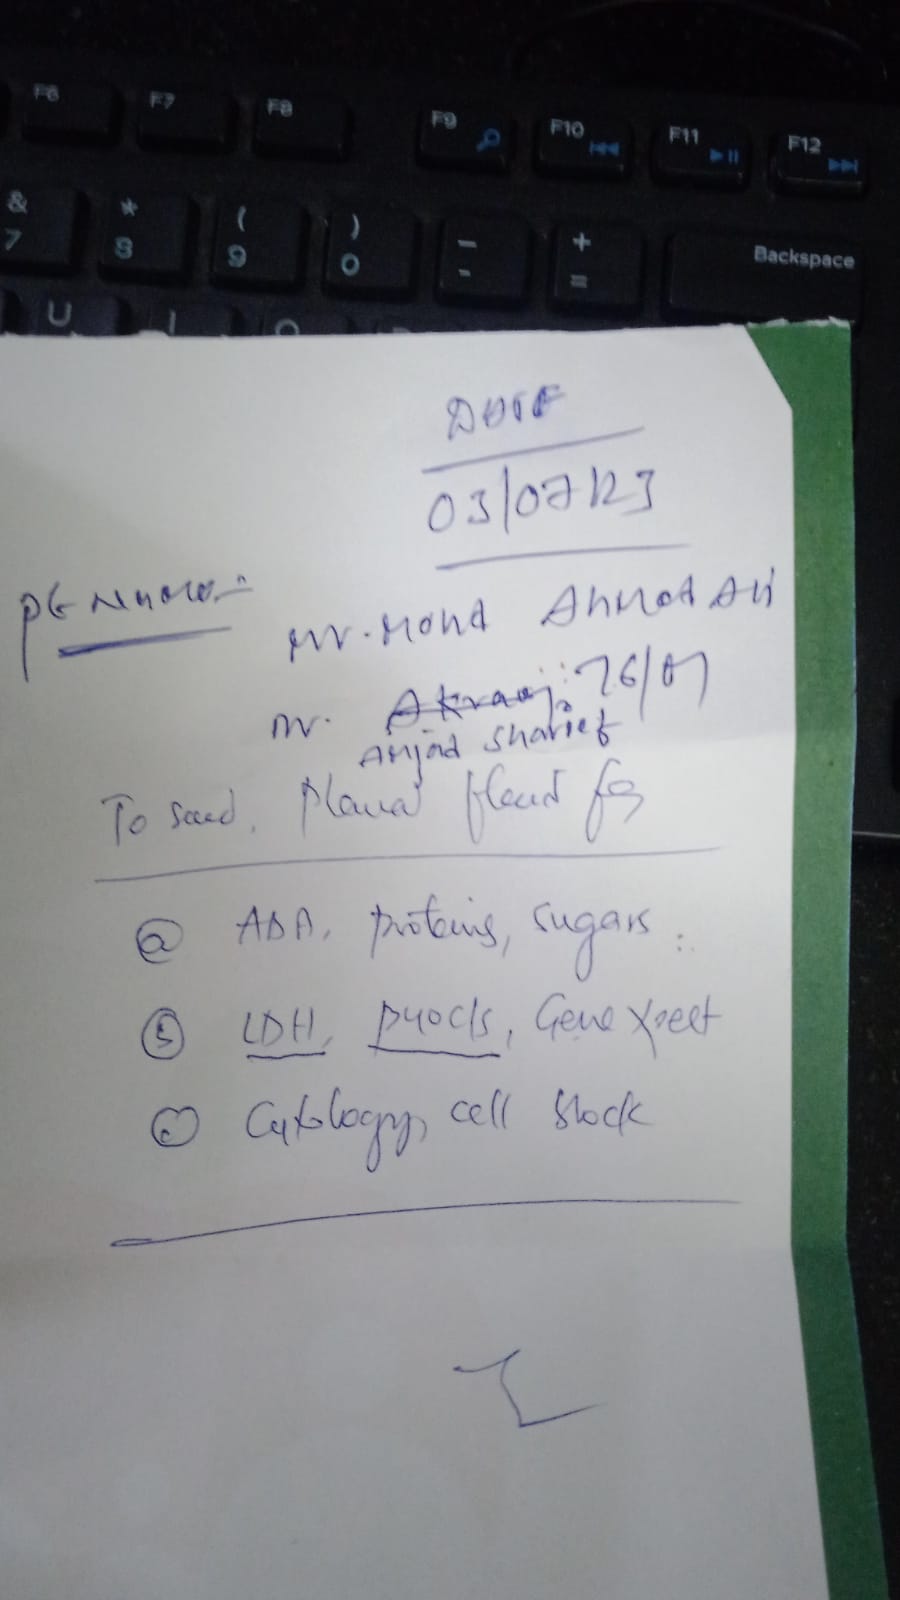 F6 F7 F8 F9 F10 F11 F12
& 7 * 8 ( 9 ) 0 - + = Backspace
U I O
DATE
03/07/23
Mr. Mohd Ahmed Ali
Mr. 76/M
Amjad Sharief
To Send, Plaural fluid for
(a) ADA, proteins, sugars
(b) LDH, Gene Xpert
(c) Cytology, cell block